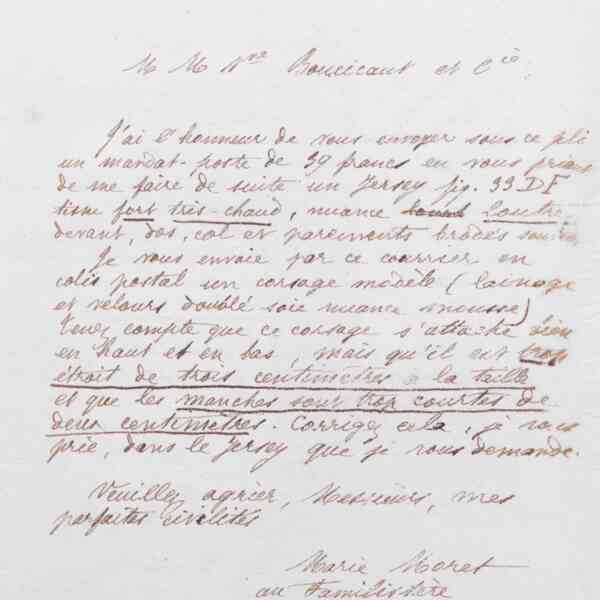 M M Vve Boucicaut et Cie.
J'ai l'honneur de vous envoyer sous ce pli
un mandat-poste de 39 francs en vous priant
de me faire de suite un Jersey fig. 33 DF
tissu fort très chaud, nuance Loutre,
devant, dos, col et parements brodés
Je vous envoie par ce courrier en
colis postal un corsage modèle (lainage
et velours doublé soie nuance mousse)
Tenez compte que ce corsage s'attache bien
en haut et en bas, mais qu'il est trop
étroit de trois centimètres à la taille
et que les manches sont trop courtes de
deux centimètres. Corrigez cela, je vous
prie, dans le Jersey que je vous demande.
Veuillez agréer, Messieurs, mes
parfaites civilités
Marie Moret
au Familistère